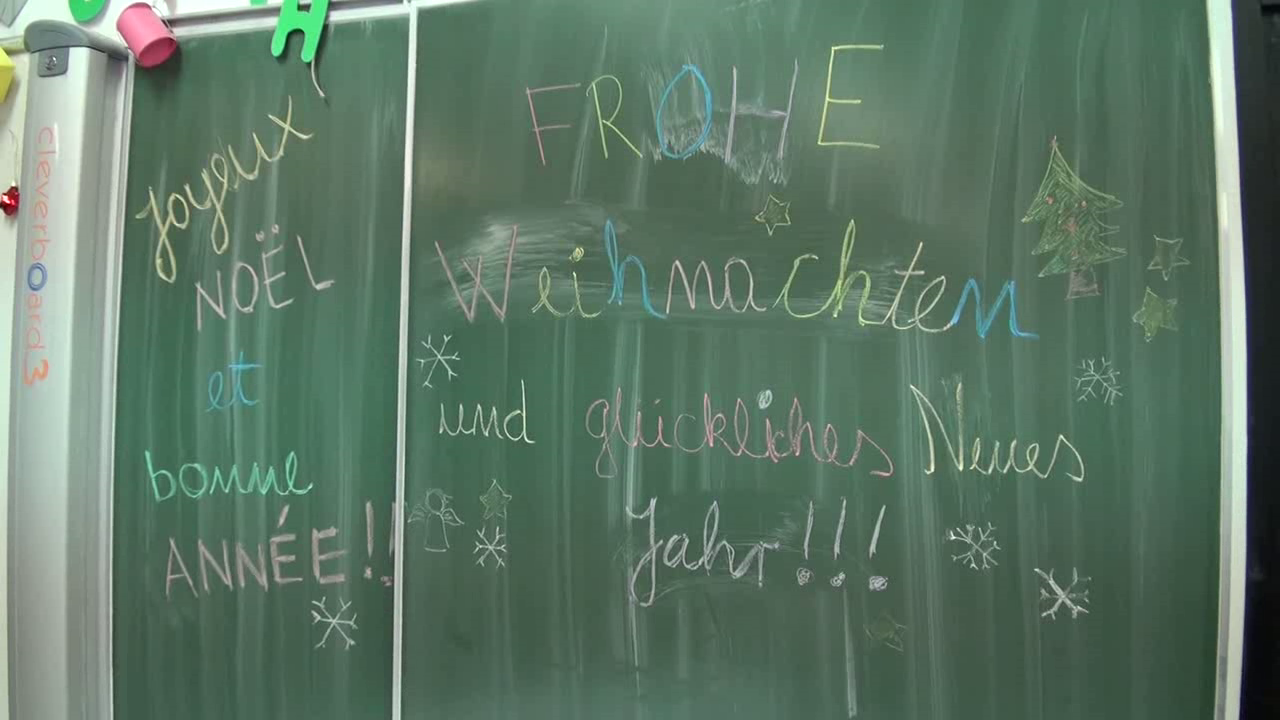 cleverboard3
H
joyeux
NOËL
et
bonne
ANNÉE!!
FROHE
Weihnachten
und glückliches Neues
Jahr!!!